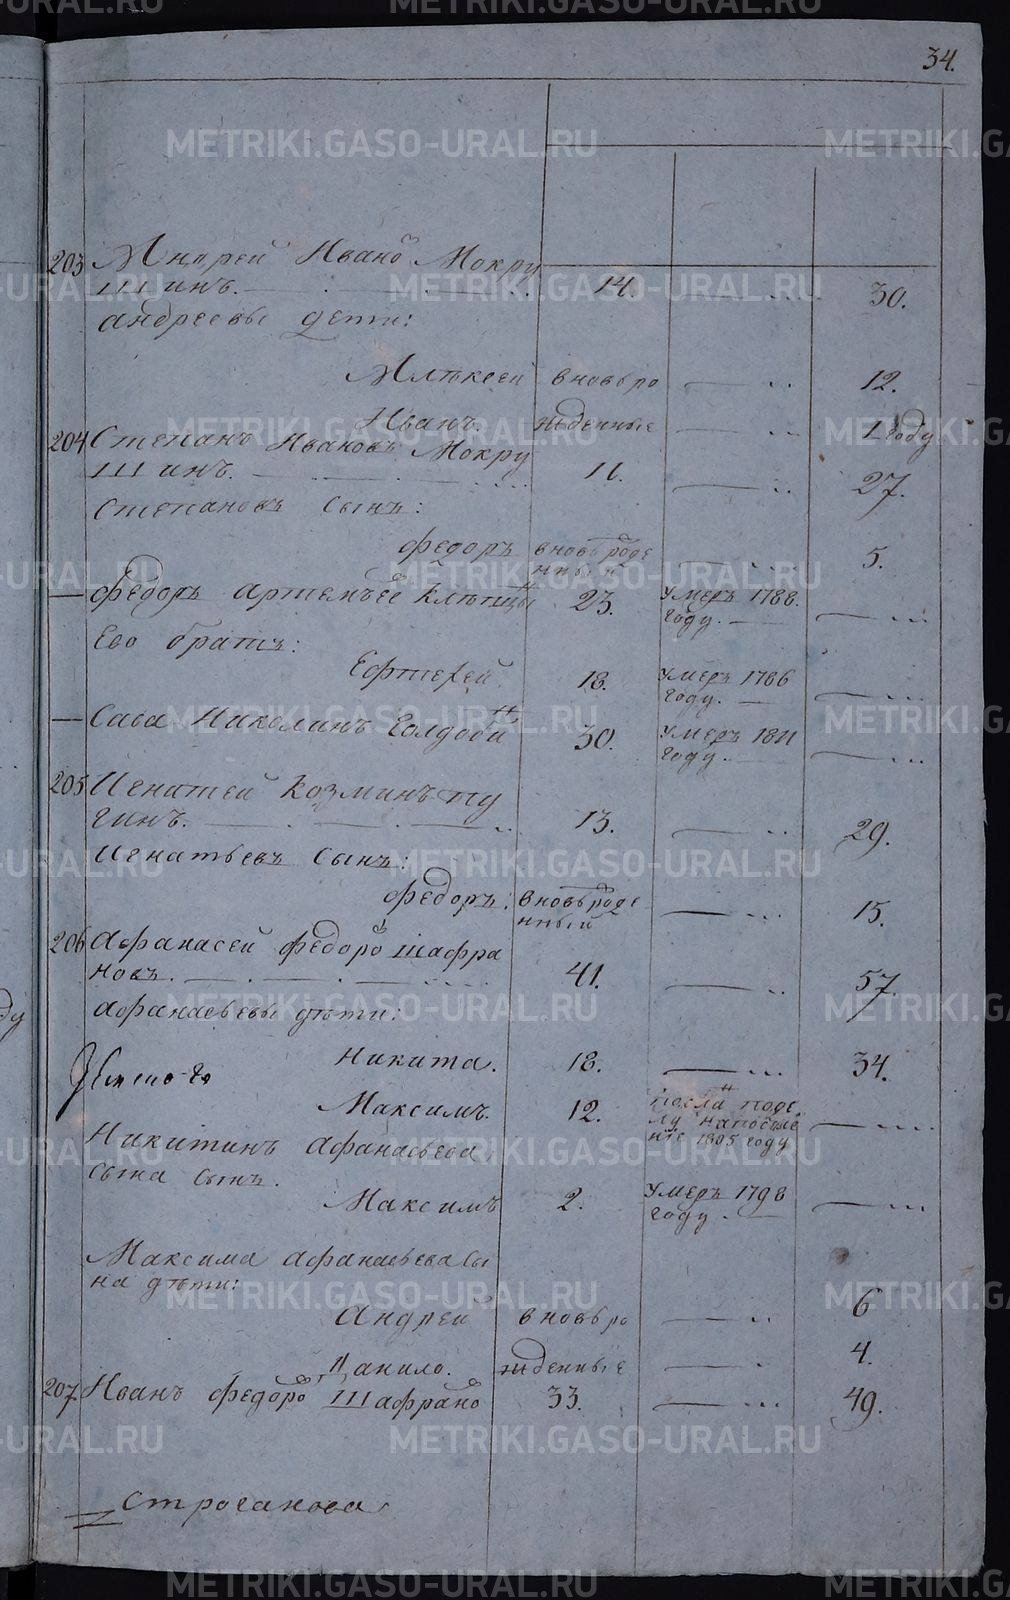 34.
203 Андрей Ивановъ Мокру
шинъ. 14. 30.
андреевы дети:
Алѣксей вновь ро 12.
Иванъ. жденные 1 году
204 Степанъ Ивановъ Мокру
шинъ. 11. 27.
Степановъ сынъ:
Федоръ вновь роде 5.
нный
Федоръ Артемьевъ 23. умеръ 1788.
году.
Ево братъ:
Ефтефей 18. умеръ 1786
году.
Сава Николинъ Голдобинъ 30. умеръ 1811
году.
205 Игнатей Козминъ ту
гинъ. 13. 29.
Игнатьевъ сынъ:
Федоръ. вновь роде 15.
нный
206 Афанасей Федоровъ шафра
новъ. 41. 57.
Афанасьевы дѣти:
Никита. 18. 34.
Максимъ. 12.
1805 году
Никитинъ Афанасьева
сына сынъ.
Максимъ 2. умеръ 1798
году.
Максима афанасьева сы
на дѣти:
Андрей вновь ро 6
Данило. жденные 4.
207 Иванъ Федоровъ Шафрановъ 33. 49.
Строганова
METRIKI.GASO-URAL.RU